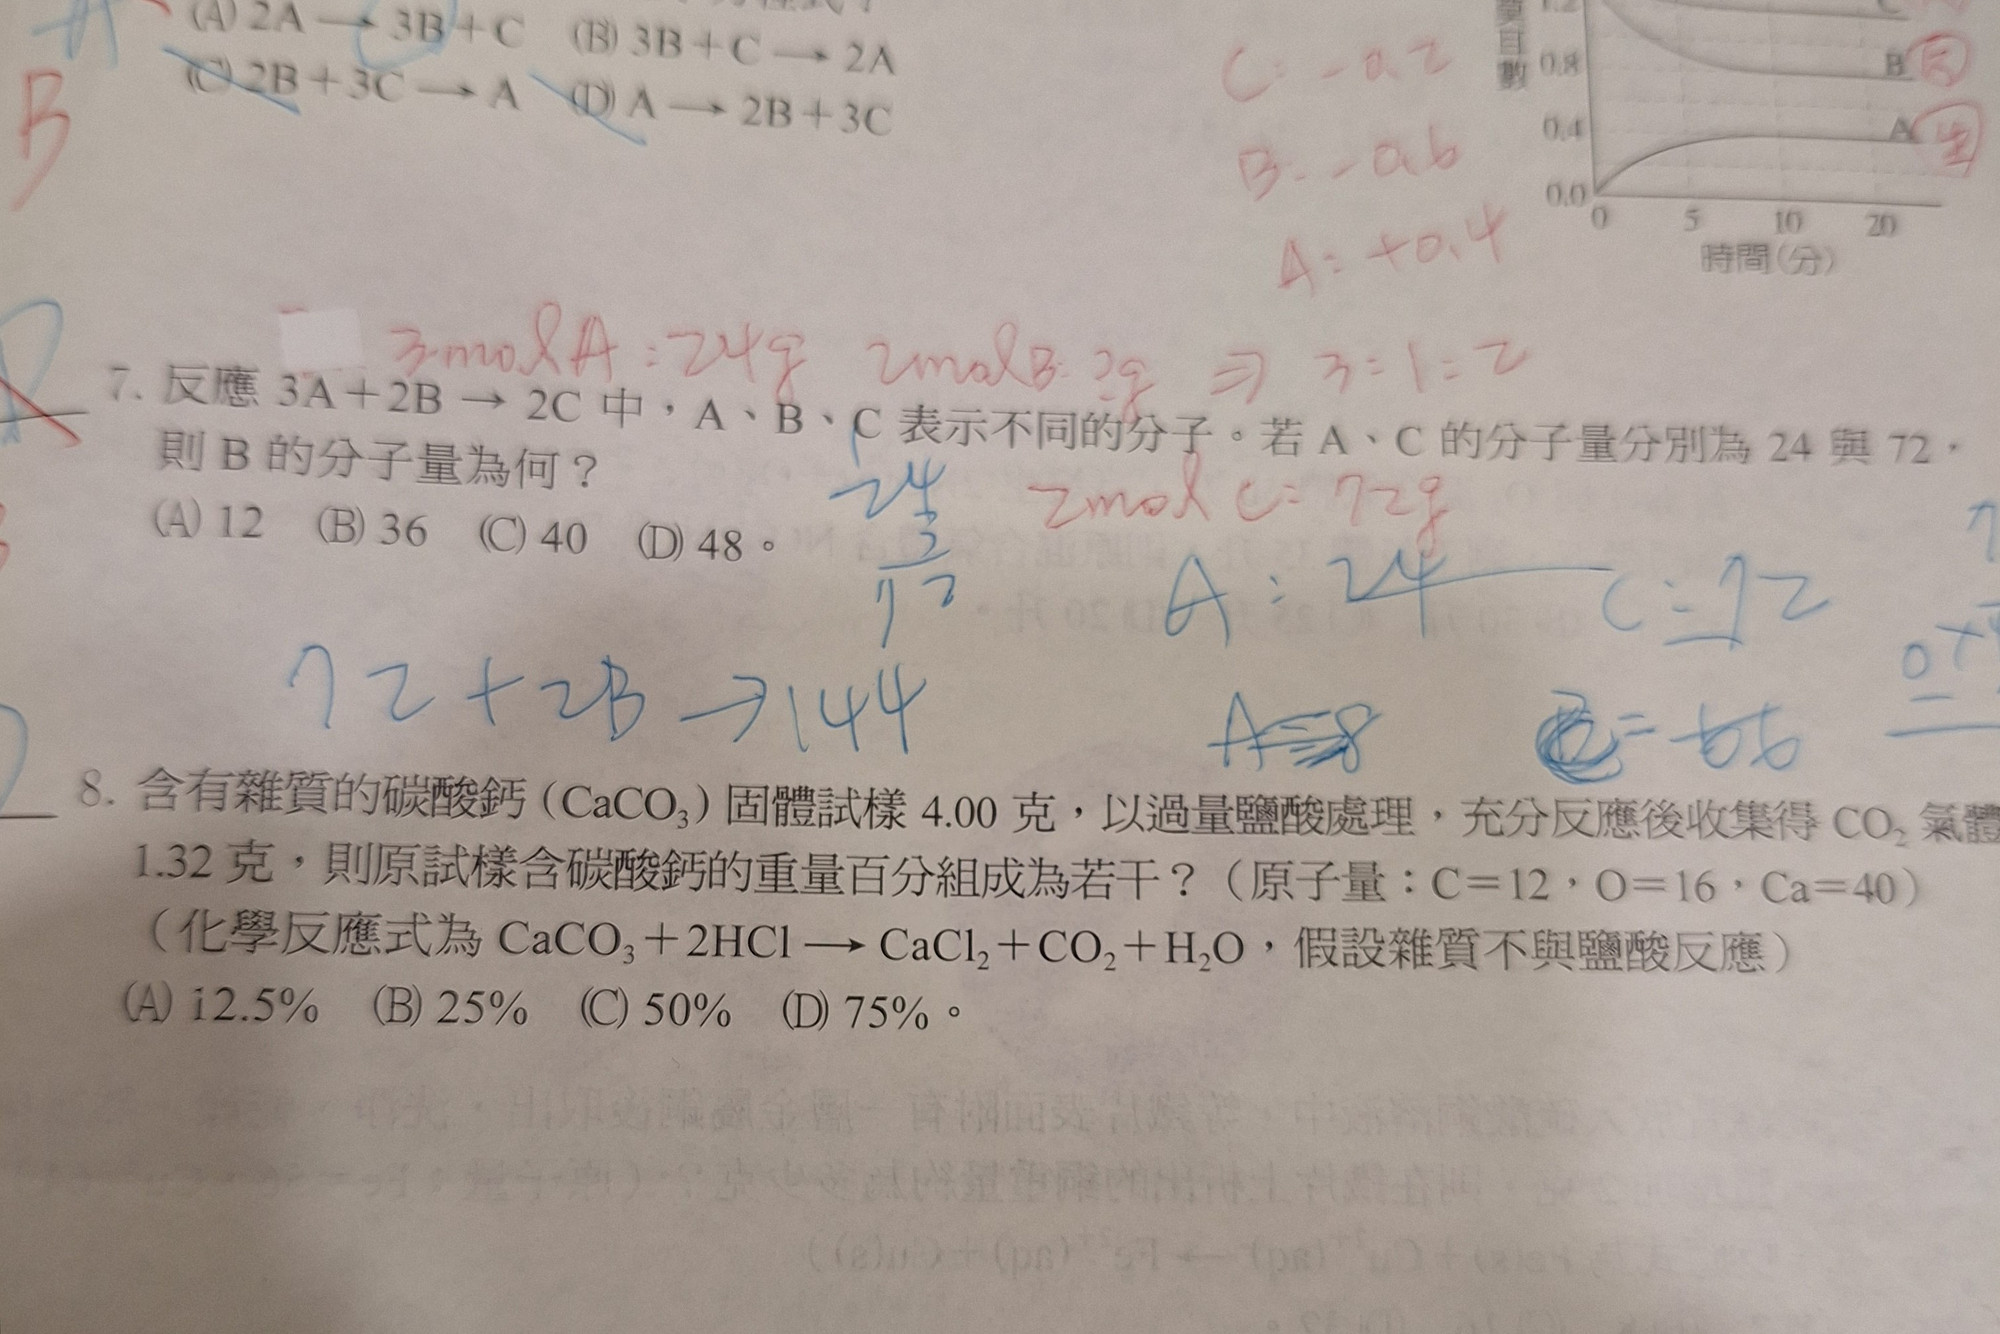 (A) 2A → 3B+C (B) 3B+C → 2A
(C) 2B+3C → A (D) A → 2B+3C
B
C: -0.2
B: -0.6
A: +0.4
數
目
1.2
0.8
0.4
0.0
C
B
A
0 5 10 20
時間(分)
3molA:24g 2molB: ⇒ 3:1:2
7. 反應 3A+2B → 2C 中，A、B、C 表示不同的分子。若 A、C 的分子量分別為 24 與 72，
則 B 的分子量為何？
2mol C: 72g
(A) 12 (B) 36 (C) 40 (D) 48。
24
3
72
A:24 C:72
72+2B→144
8. 含有雜質的碳酸鈣（CaCO₃）固體試樣 4.00 克，以過量鹽酸處理，充分反應後收集得 CO₂ 氣體
1.32 克，則原試樣含碳酸鈣的重量百分組成為若干？（原子量：C=12，O=16，Ca=40）
（化學反應式為 CaCO₃+2HCl → CaCl₂+CO₂+H₂O，假設雜質不與鹽酸反應）
(A) 12.5% (B) 25% (C) 50% (D) 75%。